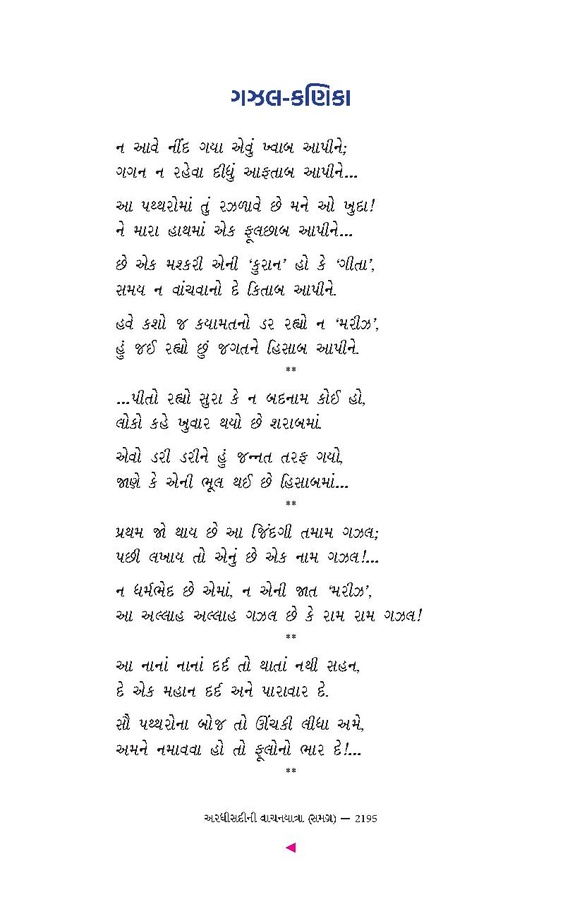 ગઝલ-કણિકા
ન આવે નીંદ ગયા એવું ખ્વાબ આપીને;
ગગન ન રહેવા દીધું આફતાબ આપીને...
આ પથ્થરોમાં તું રઝળાવે છે મને ઓ ખુદા!
ને મારા હાથમાં એક ફૂલછાબ આપીને...
છે એક મશ્કરી એની ‘કુરાન’ હો કે ‘ગીતા’,
સમય ન વાંચવાનો દે કિતાબ આપીને.
હવે કશો જ કયામતનો ડર રહ્યો ન ‘મરીઝ’,
હું જઈ રહ્યો છું જગતને હિસાબ આપીને.
**
...પીતો રહ્યો સુરા કે ન બદનામ કોઈ હો,
લોકો કહે ખુવાર થયો છે શરાબમાં.
એવો ડરી ડરીને હું જન્નત તરફ ગયો,
જાણે કે એની ભૂલ થઈ છે હિસાબમાં...
**
પ્રથમ જો થાય છે આ જિંદગી તમામ ગઝલ;
પછી લખાય તો એનું છે એક નામ ગઝલ!...
ન ધર્મભેદ છે એમાં, ન એની જાત ‘મરીઝ’,
આ અલ્લાહ અલ્લાહ ગઝલ છે કે રામ રામ ગઝલ!
**
આ નાનાં નાનાં દર્દ તો થાતાં નથી સહન,
દે એક મહાન દર્દ અને પારાવાર દે.
સૌ પથ્થરોના બોજ તો ઊંચકી લીધા અમે,
અમને નમાવવા હો તો ફૂલોનો ભાર દે!...
**
અરધી સદીની વાચનયાત્રા (સમગ્ર) — 2195